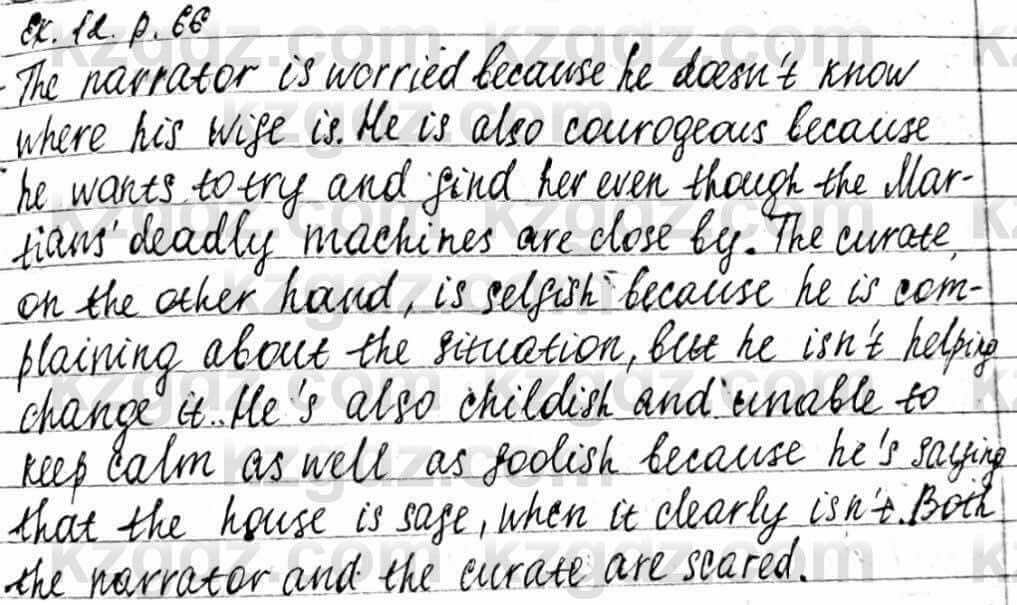 Ex. 1d. p. 66
The narrator is worried because he doesn't know
where his wife is. He is also courogeous because
he wants to try and find her even though the Mar-
tians' deadly machines are close by. The curate,
on the other hand, is selfish because he is com-
plaining about the situation, but he isn't helping
change it. He's also childish and unable to
keep calm as well as foolish because he's saying
that the house is safe, when it clearly isn't. Both
the narrator and the curate are scared.